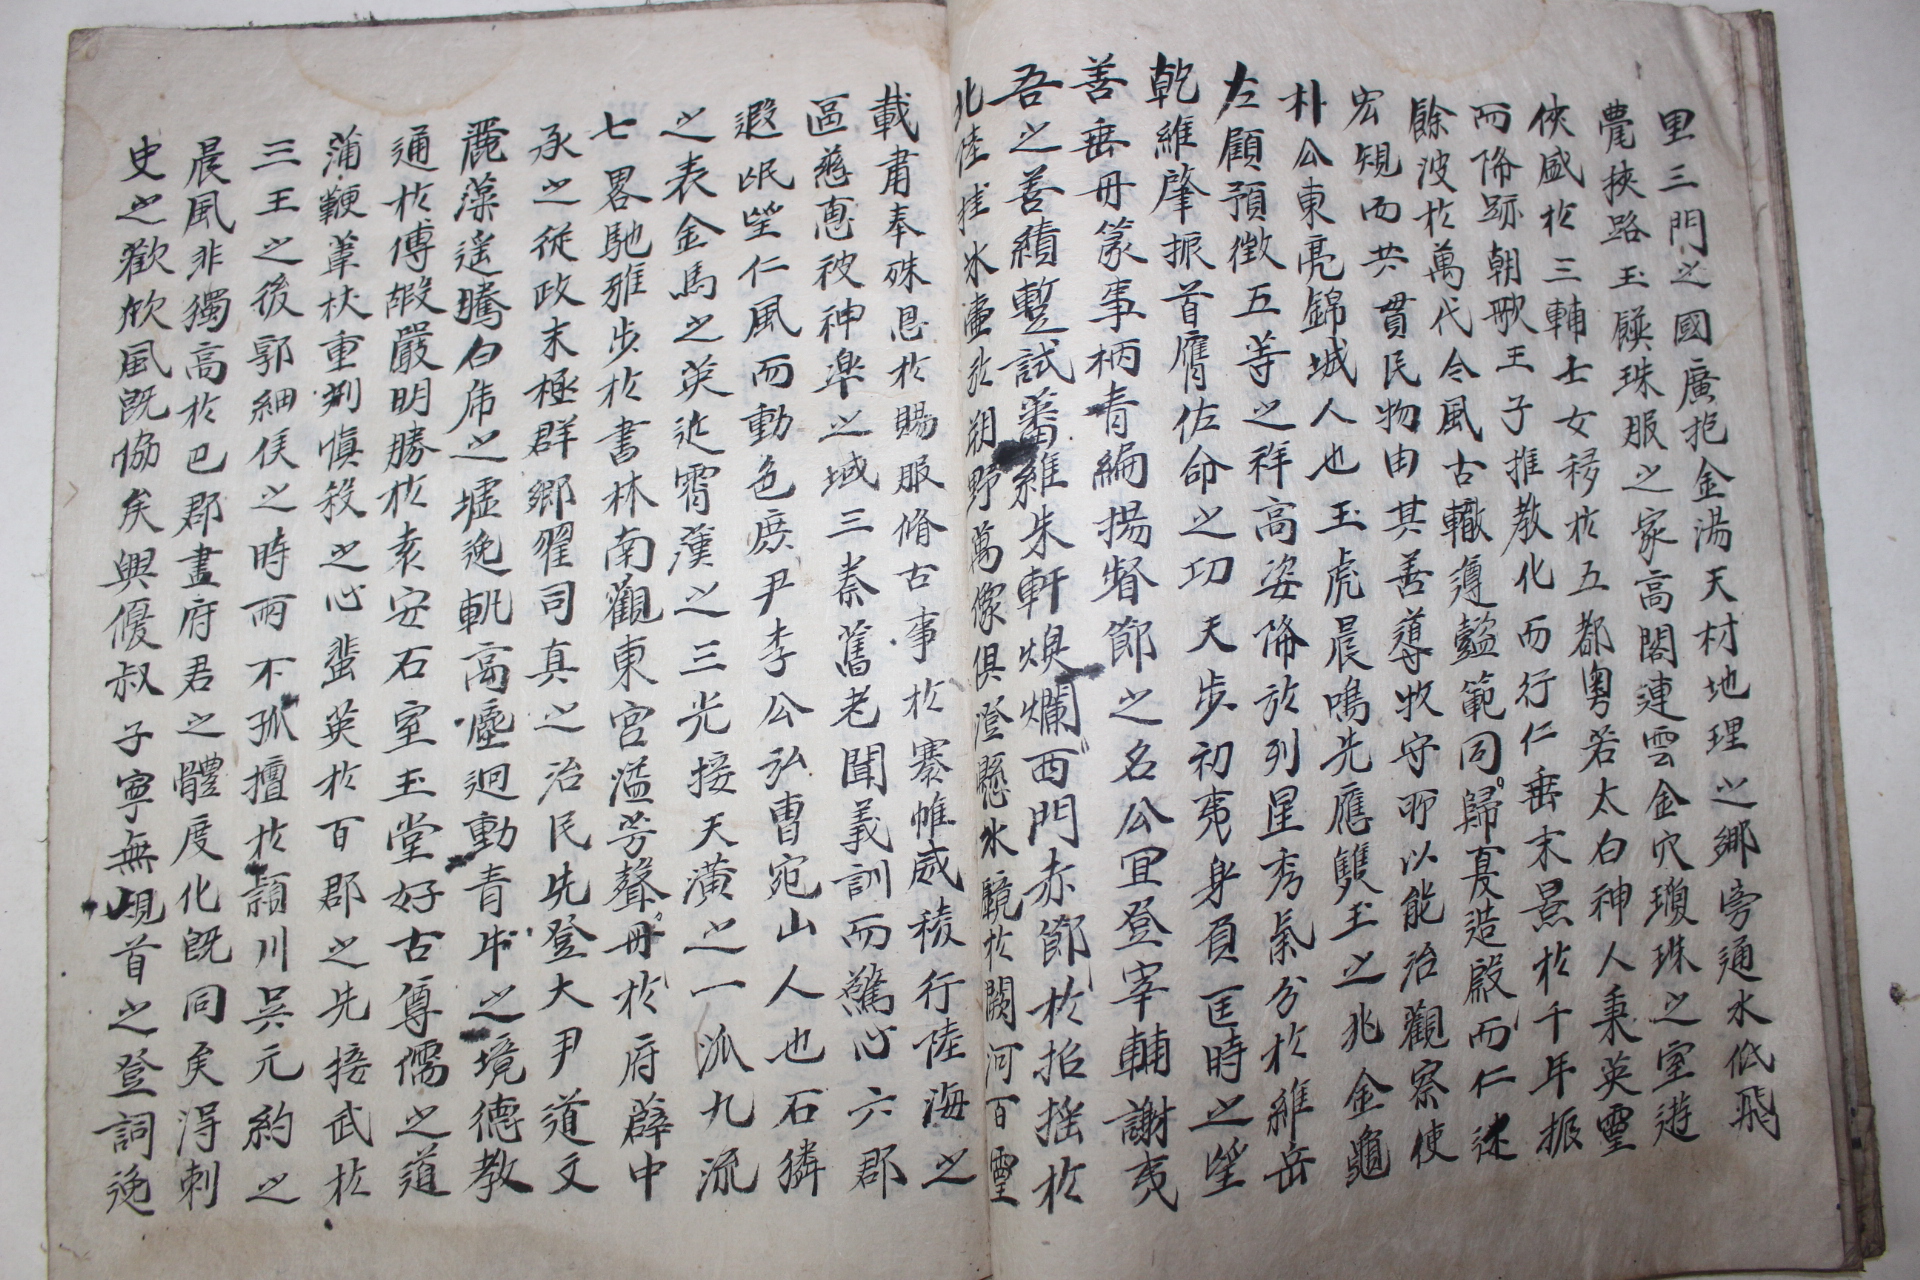 里三門之國廣抱金湯天材地理之鄉旁通水低飛
甍挾路玉饌珠服之家高閣連雲金穴瓊珠之室遊
俠盛於三輔士女移於五都粤若太白神人秉英靈
而降跡朝歌王子推教化而行仁垂末景於千年振
餘波於萬代令風古轍遵懿範同歸夏造殿而仁迷
宏規而共貫民物由其善導牧守所以能治觀察使
朴公東亮錦城人也玉虎晨鳴先應雙玉之兆金龜
左顧預徵五等之祥高姿降於列星秀氣分於維岳
乾維肇振首膺佐命之功天步初夷身負匡時之望
善垂冊篆事柄青編揚督節之名公宜登宰輔謝夷
吾之善績蹔試蕃維朱軒煥爛西門赤節於招搖於
北陸挂氷壺於朔野萬像俱澄懸氷鏡於關河百靈
載肅奉殊恩於賜服脩古事於寨帷威稜行陸海之
區慈惠被神皐之域三秦舊老聞義訓而驚心六郡
遐氓望仁風而動色庶尹李公弘曹宛山人也石獜
之表金馬之英迯霄漢之三光接天潢之一派九流
七畧馳雅步於書林南觀東宮溢芳聲冊於府薜中
承之從政末極群鄉翟司真之治民先登大尹道文
麗藻遥騰白乕之墟逸軏高塵迥動青牛之境德教
通於傅嘏嚴明勝於袁安石室玉堂好古尊儒之道
蒲鞭葦杖重剕愼殺之心蜚英於百郡之先接武於
三王之後郭細侯之時雨不孤擅於潁川吳元約之
晨風非獨高於巴郡畫府君之體度化旣同矣淂刺
史之歡欣風旣恊矣興優叔子寧無峴首之登詞逸